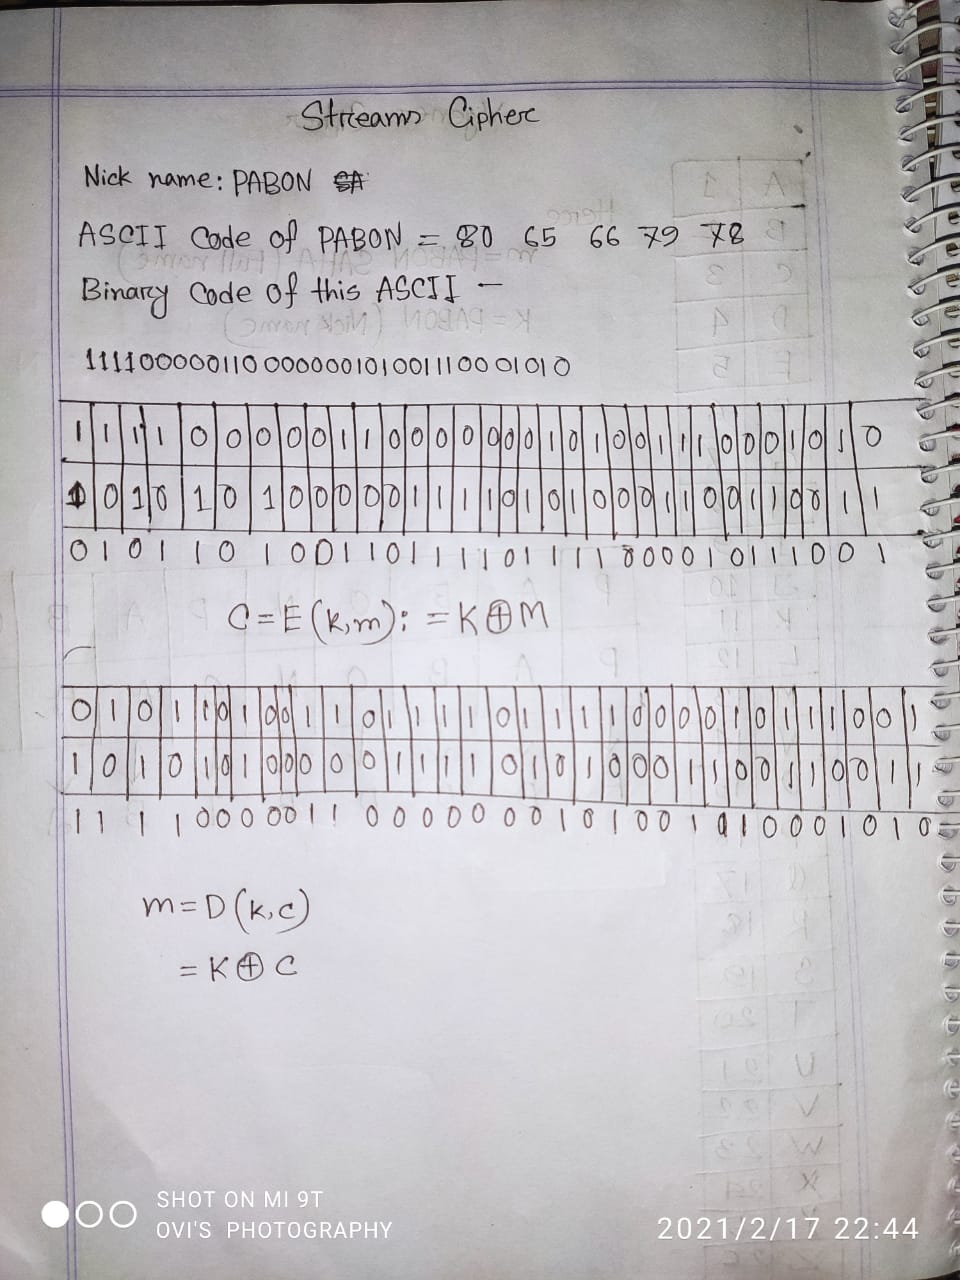 Streams Cipher
Nick name: PABON
ASCII Code of PABON = 80 65 66 79 78
Binary Code of this ASCII —
111100000110000000101001110001010
1 1 1 1 0 0 0 0 0 1 1 0 0 0 0 0 0 0 1 0 1 0 0 1 1 1 0 0 0 1 0 1 0
1 0 1 0 1 0 1 0 0 0 0 0 1 1 1 1 0 1 0 1 0 0 0 1 1 0 0 1 1 0 0 1 1
0 1 0 1 1 0 1 0 0 1 1 0 1 1 1 1 0 1 1 1 1 0 0 0 0 1 0 1 1 1 0 0 1
C = E (k,m) : = K ⊕ M
0 1 0 1 1 0 1 0 0 1 1 0 1 1 1 1 0 1 1 1 1 0 0 0 0 1 0 1 1 1 0 0 1
1 0 1 0 1 0 1 0 0 0 0 0 0 1 1 1 1 0 1 0 1 0 0 0 1 1 0 0 1 1 0 0 1 1
1 1 1 1 0 0 0 0 0 1 1 0 0 0 0 0 0 0 1 0 1 0 0 1 1 1 0 0 0 1 0 1 0
m = D (k,c)
= K ⊕ C
SHOT ON MI 9T
OVI'S PHOTOGRAPHY
2021/2/17 22:44